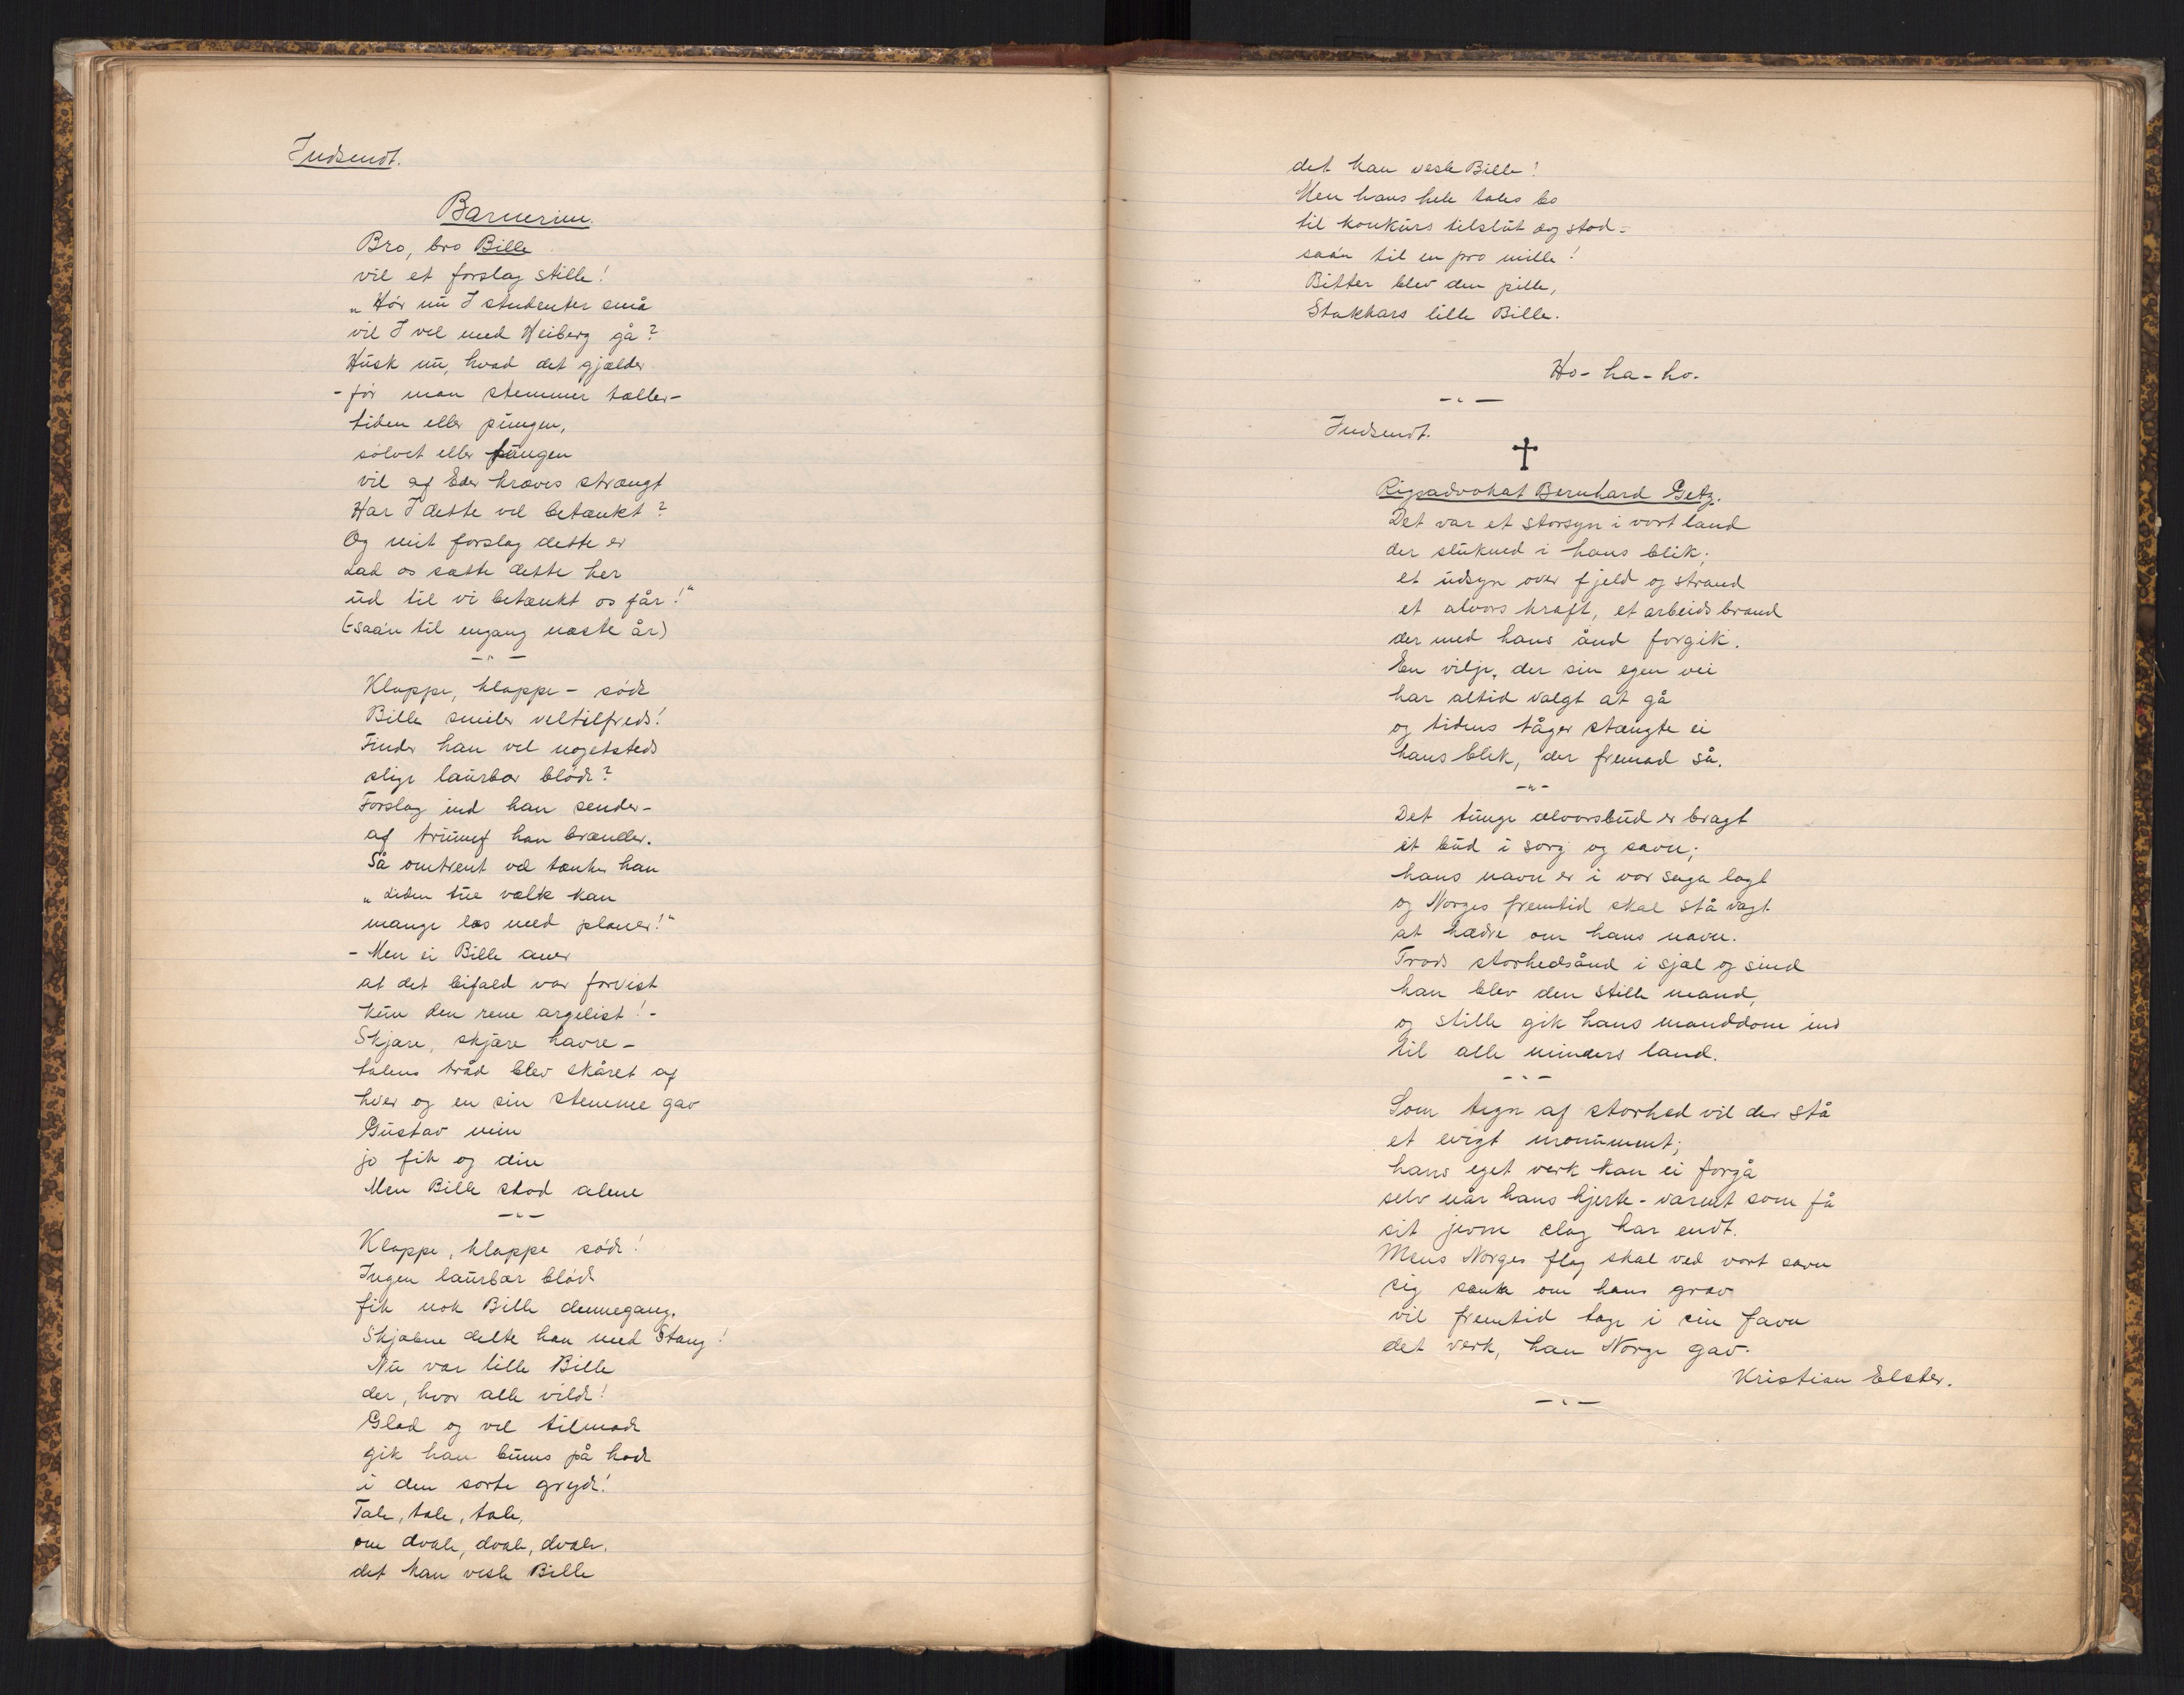 Indsendt.
Barnerim.
Bro, bro Bille
vil et forslag stille!
„Hör nu I studenter små
vil I vel med Heiberg gå?
Husk nu, hvad det gjælder
- för man stemmer tæller-
tiden eller pungen,
sölvet eller tungen
vil af Eder kræves strængt
Har I dette vel betænkt?
Og mit forslag dette er
Lad os sætte dette her
ud til vi betænkt os får!"
(-saån til engang næste år)
-"-
Klappe, klappe - söde
Bille smiler veltilfreds!
Finder han vel nogetsteds
slige laurbær blöde?
Forslag ind han sender-
af triumf han brænder.
Så omtrent vel tænker han
„Liden tue vælte kan
mange læs med planer!"
- Men ei Bille aner
at det bifald var forvist
kun den rene argelist! -
Skjære, skjære havre -
talens tråd blev skåret af
hver og en sin stemme gav
Gustav min
jo fik og din
Men Bille stod alene
-"-
Klappe, klappe söde!
Ingen laurbær blöde
fik nok Bille dennegang.
Skjæbne delte han med Stang!
Nu var lille Bille
der, hvor alle vilde!
Glad og vel tilmode
gik han bums på hode
i den sorte gryde!
Tale, tale, tale,
om dvale, dvale, dvale.
det kan vesle Bille
det kan vesle Bille!
Men hans hele tales bo
til konkurs tilslut dog stod -
saån til en pro mille!
Bitter blev den pille,
Stakkars lille Bille.
Ho-ha-ho.
-"-
Indsendt.
†
Rigsadvokat Bernhard Getz.
Det var et storsyn i vort land
der slukned i hans blik;
et udsyn over fjeld og strand
et alvors kraft, et arbeids brand
der med hans ånd forgik.
En vilje, der sin egen vei
har altid valgt at gå
og tidens tåger stængte ei
hans blik, der fremad så.
-"-
Det tunge alvorsbud er bragt
et bud i sorg og savn;
hans navn er i vor saga lagt
og Norges fremtid skal stå vagt
at hædre om hans navn.
Trods storhedsånd i sjæl og sind
han blev den stille mand,
og stille gik hans manddom ind
til alle minders land.
-"-
Som tegn af storhed vil der stå
et evigt monument;
hans eget verk kan ei forgå
selv når hans hjerte - varmt som få
sit jevne slag har endt.
Mens Norges flag skal ved vort savn
sig sænke om hans grav
vil fremtid tage i sin favn
det verk, han Norge gav.
Kristian Elster.
-"-